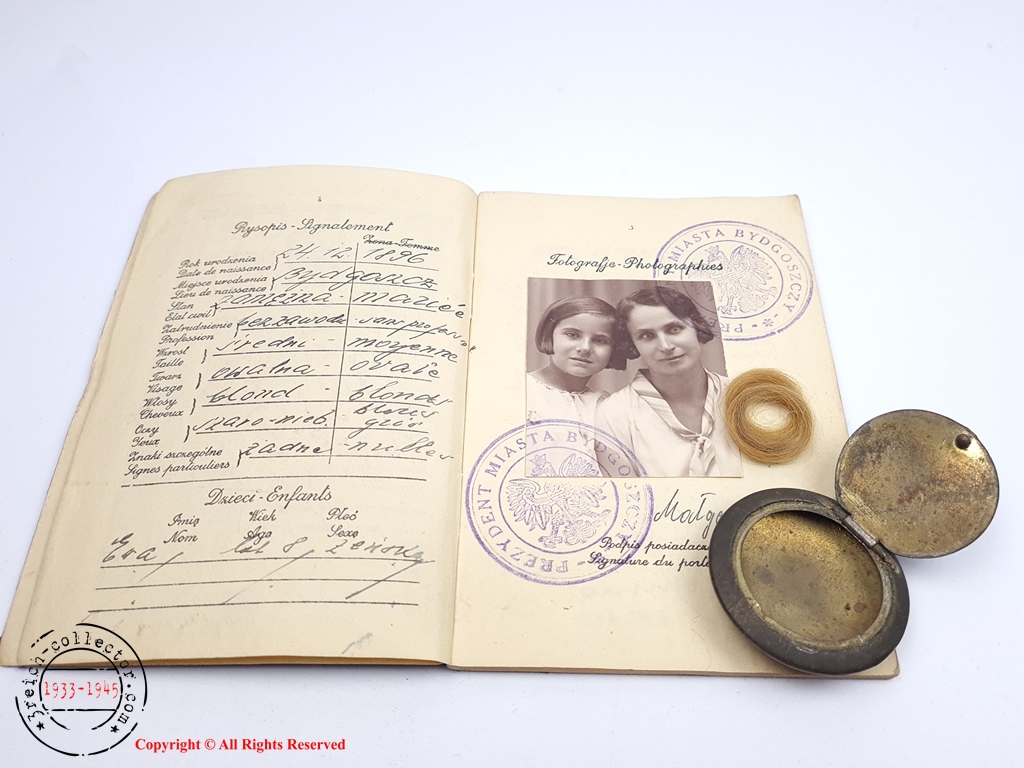 Rysopis - Signalement
Żona - Femme
Rok urodzenia
Date de naissance
24. 12. 1896
Miejsce urodzenia
Lieu de naissance
Bydgoszcz
Stan
Etat civil
zamężna - mariée
Zatrudnienie
Profession
bez zawodu - sans profession
Wzrost
Taille
średni - moyenne
Twarz
Visage
owalna - ovale
Włosy
Cheveux
blond - blonds
Oczy
Yeux
szaro-nieb. gris
Znaki szczególne
Signes particuliers
żadne - nulles
Dzieci - Enfants
Imię Wiek Płeć
Nom Age Sexe
Eva lat 8
Fotografje - Photographies
PREZYDENT MIASTA BYDGOSZCZY
MIASTA BYDGOSZCZY - PR
Małgo
Podpis posiadacz
Signature du porte
3reich-collector.com
1933-1945
Copyright © All Rights Reserved